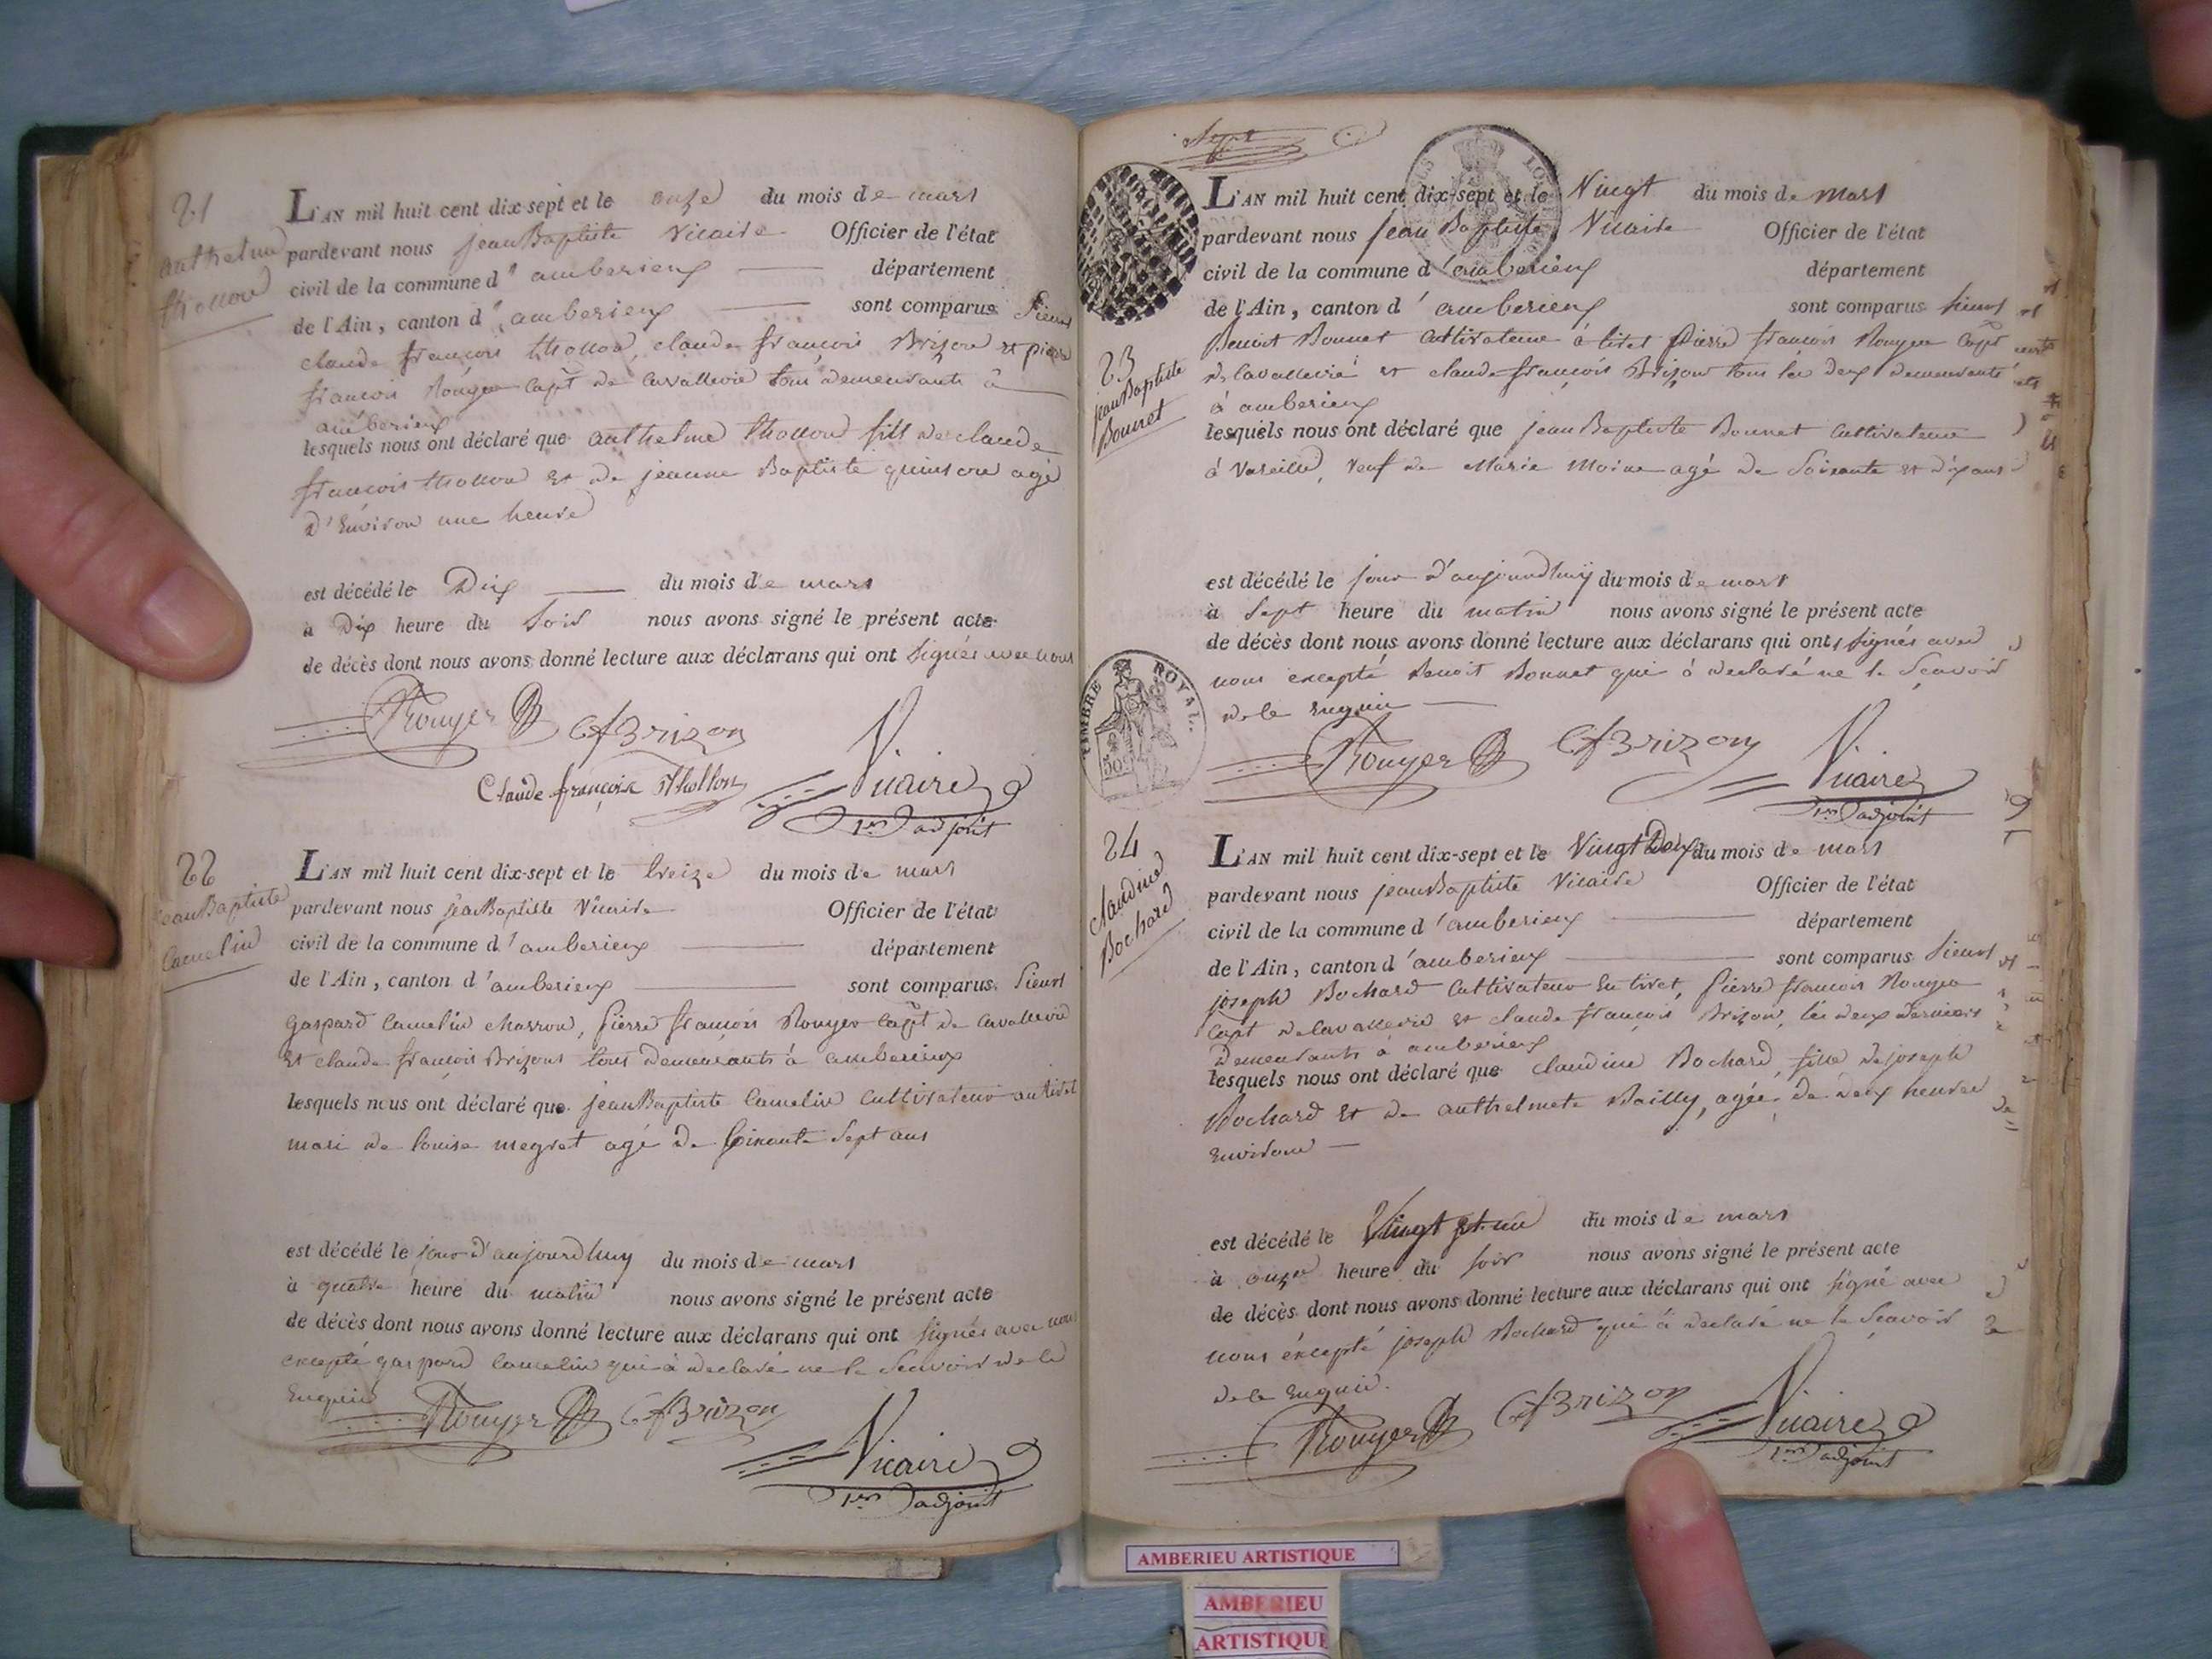 21
anthelme
thollon
L'AN mil huit cent dix-sept et le onze du mois de mars
pardevant nous jean Baptiste Vicaire Officier de l'état
civil de la commune d' amberieux département
de l'Ain, canton d' amberieux sont comparus Sieurs
claude françois thollon, claude françois Brizon et pierre
françois Rouyer capt de cavallerie tous demeurants à
amberieux
lesquels nous ont déclaré que anthelme thollon fils de claude
françois thollon et de jeanne Baptiste quinson agé
d'Environ une heure
est décédé le Dix du mois de mars
à Dix heure du Soir nous avons signé le présent acte
de décès dont nous avons donné lecture aux déclarans qui ont signés avec nous
Rouyer CfBrizon
Claude françois Thollon Vicaire
1er adjoint
22
jean Baptiste
Camelin
L'AN mil huit cent dix-sept et le treize du mois de mars
pardevant nous jean Baptiste Vicaire Officier de l'état
civil de la commune d' amberieux département
de l'Ain, canton d' amberieux sont comparus Sieurs
gaspard Camelin charron, pierre françois Rouyer capt de cavallerie
et claude françois Brizon tous demeurants à amberieux
lesquels nous ont déclaré que jean Baptiste Camelin cultivateur au tiret
mari de louise megret agé de soixante sept ans
est décédé le jour d'aujourdhuy du mois de mars
à quatre heure du matin nous avons signé le présent acte
de décès dont nous avons donné lecture aux déclarans qui ont signés avec nous
excepté gaspard Camelin qui à declaré ne le Scavoir de le
Enquis
Rouyer CfBrizon
Vicaire
1er adjoint
Sept
23
jean Baptiste
Bonnet
L'AN mil huit cent dix-sept et le Vingt du mois de mars
pardevant nous jean Baptiste Vicaire Officier de l'état
civil de la commune d' amberieux département
de l'Ain, canton d' amberieux sont comparus Sieurs
Benoit Bonnet cultivateur à tiret pierre françois Rouyer capt
de cavallerie et claude françois Brizon tous les deux demeurants
à amberieux
lesquels nous ont déclaré que jean Baptiste Bonnet cultivateur
à Vareille, veuf de Marie Moine agé de Soixante et dix ans
est décédé le jour d'aujourdhuy du mois de mars
à Sept heure du matin nous avons signé le présent acte
de décès dont nous avons donné lecture aux déclarans qui ont signés avec
nous excepté Benoit Bonnet qui à declaré ne le Scavoir
de le enquis
TIMBRE ROYAL
50
Rouyer CfBrizon
Vicaire
1er adjoint
24
claudine
Bochard
L'AN mil huit cent dix-sept et le Vingt Deux du mois de mars
pardevant nous jean Baptiste Vicaire Officier de l'état
civil de la commune d' amberieux département
de l'Ain, canton d' amberieux sont comparus Sieurs
joseph Bochard cultivateur en tiret, pierre françois Rouyer
capt de cavallerie et claude françois Brizon, les deux derniers
demeurants à amberieux
lesquels nous ont déclaré que claudine Bochard, fille de joseph
Bochard et de anthelmete Bailly, agée de deux heures
environ
est décédé le Vingt et un du mois de mars
à onze heure du soir nous avons signé le présent acte
de décès dont nous avons donné lecture aux déclarans qui ont signé avec
nous excepté joseph Bochard qui à declaré ne le Scavoir
de le Enquis.
Rouyer CfBrizon Vicaire
1er adjoint
AMBERIEU ARTISTIQUE
AMBERIEU
ARTISTIQUE